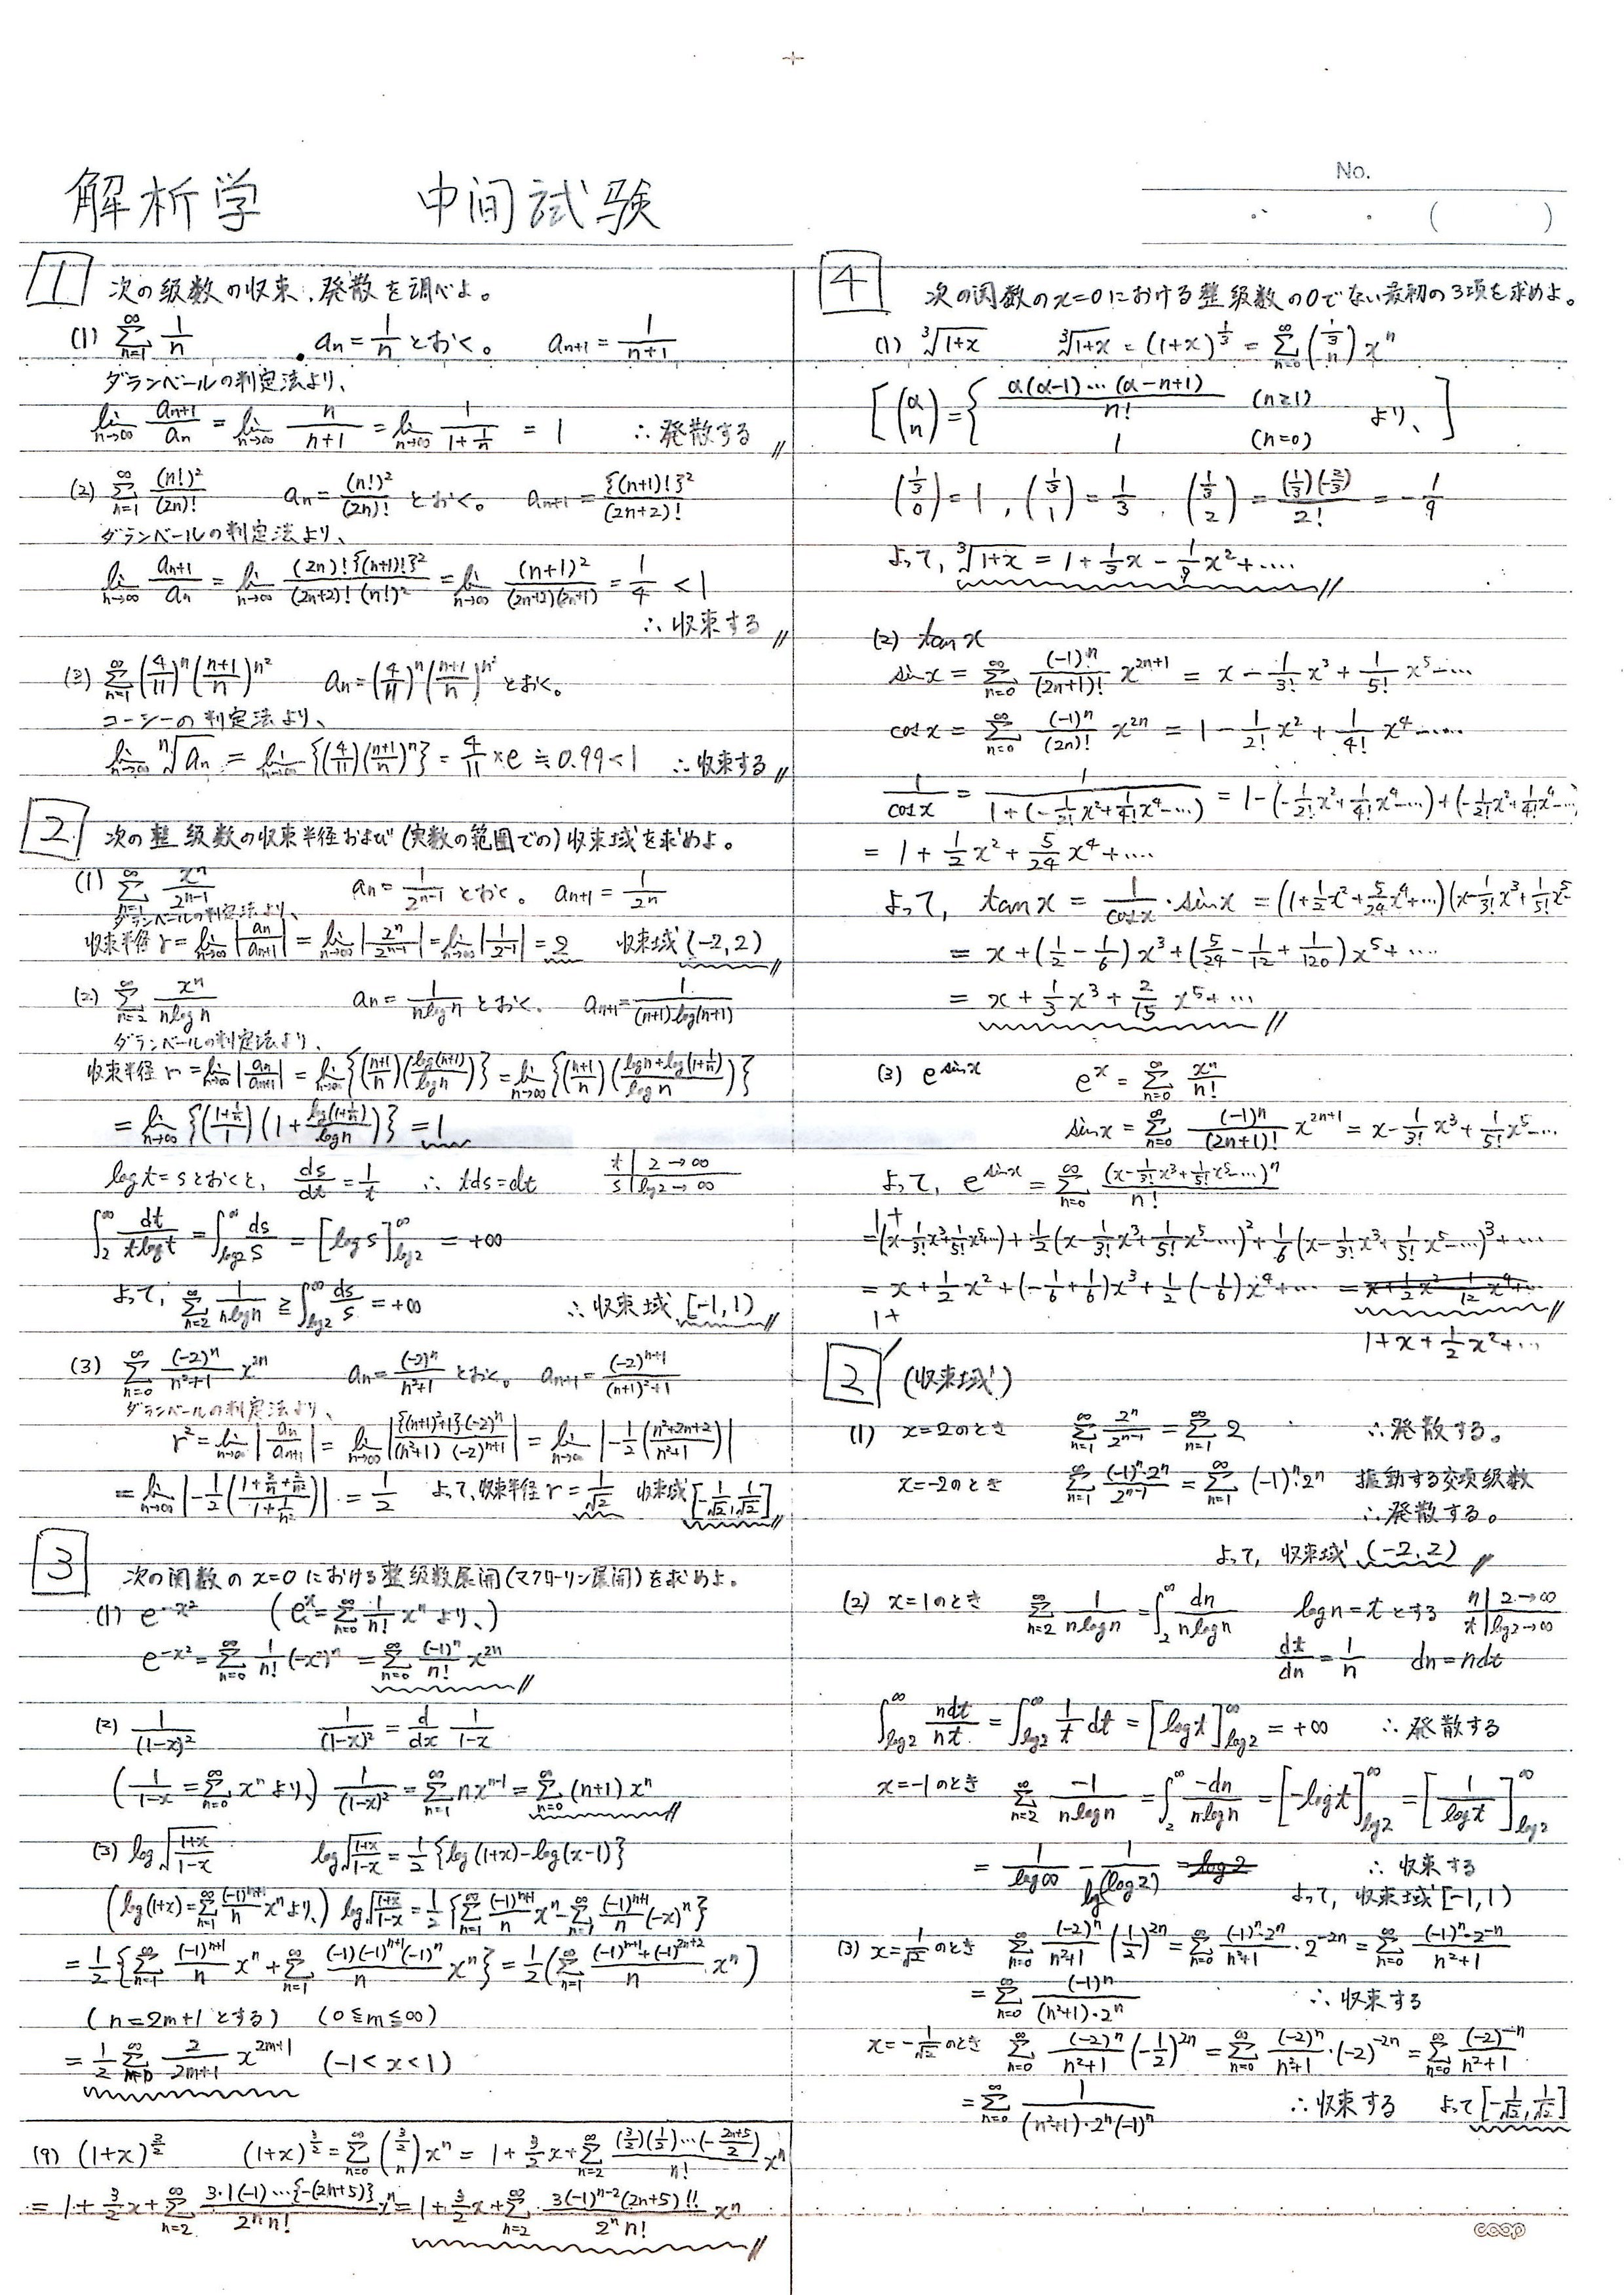 No.
解析学 中間試験
( )
1 次の級数の収束、発散を調べよ。
(1) \sum_{n=1}^{∞} \frac{1}{n} a_n = \frac{1}{n} とおく。 a_{n+1} = \frac{1}{n+1}
ダランベールの判定法より、
\lim_{n→∞} \frac{a_{n+1}}{a_n} = \lim_{n→∞} \frac{n}{n+1} = \lim_{n→∞} \frac{1}{1+\frac{1}{n}} = 1 ∴発散する
(2) \sum_{n=1}^{∞} \frac{(n!)^2}{(2n)!} a_n = \frac{(n!)^2}{(2n)!} とおく。 a_{n+1} = \frac{\{(n+1)!\}^2}{(2n+2)!}
ダランベールの判定法より、
\lim_{n→∞} \frac{a_{n+1}}{a_n} = \lim_{n→∞} \frac{(2n)!\{(n+1)!\}^2}{(2n+2)!(n!)^2} = \lim_{n→∞} \frac{(n+1)^2}{(2n+2)(2n+1)} = \frac{1}{4} < 1
∴収束する
(3) \sum_{n=1}^{∞} (\frac{4}{11})^n (\frac{n+1}{n})^{n^2} a_n = (\frac{4}{11})^n (\frac{n+1}{n})^{n^2} とおく。
コーシーの判定法より、
\lim_{n→∞} \sqrt[n]{a_n} = \lim_{n→∞} \{(\frac{4}{11})(\frac{n+1}{n})^n\} = \frac{4}{11} × e ≒ 0.99 < 1 ∴収束する
2 次の整級数の収束半径および(実数の範囲での)収束域を求めよ。
(1) \sum_{n=1}^{∞} \frac{x^n}{2^{n-1}} a_n = \frac{1}{2^{n-1}} とおく。 a_{n+1} = \frac{1}{2^n}
ダランベールの判定法より、
収束半径 r = \lim_{n→∞} |\frac{a_n}{a_{n+1}}| = \lim_{n→∞} |\frac{2^n}{2^{n-1}}| = \lim_{n→∞} |\frac{1}{2^{-1}}| = 2 収束域 (-2, 2)
(2) \sum_{n=2}^{∞} \frac{x^n}{n log n} a_n = \frac{1}{n log n} とおく。 a_{n+1} = \frac{1}{(n+1) log(n+1)}
ダランベールの判定法より、
収束半径 r = \lim_{n→∞} |\frac{a_n}{a_{n+1}}| = \lim_{n→∞} \{(\frac{n+1}{n})(\frac{log(n+1)}{log n})\} = \lim_{n→∞} \{(\frac{n+1}{n})(\frac{log n + log(1+\frac{1}{n})}{log n})\}
= \lim_{n→∞} \{(\frac{1+\frac{1}{n}}{1})(1 + \frac{log(1+\frac{1}{n})}{log n})\} = 1
log t = s とおくと、 \frac{ds}{dt} = \frac{1}{t} ∴ tds = dt t | 2 → ∞ s | log2 → ∞
\int_2^{∞} \frac{dt}{t log t} = \int_{log2}^{∞} \frac{ds}{s} = [log s]_{log2}^{∞} = +∞
よって、 \sum_{n=2}^{∞} \frac{1}{n log n} ≧ \int_{log2}^{∞} \frac{ds}{s} = +∞ ∴収束域 [-1, 1)
(3) \sum_{n=0}^{∞} \frac{(-2)^n}{n^2+1} x^{2n} a_n = \frac{(-2)^n}{n^2+1} とおく。 a_{n+1} = \frac{(-2)^{n+1}}{(n+1)^2+1}
ダランベールの判定法より、
r^2 = \lim_{n→∞} |\frac{a_n}{a_{n+1}}| = \lim_{n→∞} |\frac{\{(n+1)^2+1\}(-2)^n}{(n^2+1)(-2)^{n+1}}| = \lim_{n→∞} |-\frac{1}{2}(\frac{n^2+2n+2}{n^2+1})|
= \lim_{n→∞} |-\frac{1}{2}(\frac{1+\frac{2}{n}+\frac{2}{n^2}}{1+\frac{1}{n^2}})| = \frac{1}{2} よって、収束半径 r = \frac{1}{\sqrt{2}} 収束域 [-\frac{1}{\sqrt{2}}, \frac{1}{\sqrt{2}}]
3 次の関数の x=0 における整級数展開(マクローリン展開)を求めよ。
(1) e^{-x^2} (e^x = \sum_{n=0}^{∞} \frac{1}{n!} x^n より、)
e^{-x^2} = \sum_{n=0}^{∞} \frac{1}{n!} (-x^2)^n = \sum_{n=0}^{∞} \frac{(-1)^n}{n!} x^{2n}
(2) \frac{1}{(1-x)^2} \frac{1}{(1-x)^2} = \frac{d}{dx} \frac{1}{1-x}
(\frac{1}{1-x} = \sum_{n=0}^{∞} x^n より、) \frac{1}{(1-x)^2} = \sum_{n=1}^{∞} nx^{n-1} = \sum_{n=0}^{∞} (n+1) x^n
(3) log\sqrt{\frac{1+x}{1-x}} log\sqrt{\frac{1+x}{1-x}} = \frac{1}{2} \{log(1+x) - log(x-1)\}
(log(1+x) = \sum_{n=1}^{∞} \frac{(-1)^{n+1}}{n} x^n より、) log\sqrt{\frac{1+x}{1-x}} = \frac{1}{2} \{\sum_{n=1}^{∞} \frac{(-1)^{n+1}}{n} x^n - \sum_{n=1}^{∞} \frac{(-1)^{n+1}}{n} (-x)^n\}
= \frac{1}{2} \{\sum_{n=1}^{∞} \frac{(-1)^{n+1}}{n} x^n + \sum_{n=1}^{∞} \frac{(-1)(-1)^{n+1}(-1)^n}{n} x^n\} = \frac{1}{2} (\sum_{n=1}^{∞} \frac{(-1)^{n+1}+(-1)^{2n+2}}{n} x^n)
(n = 2m+1 とする) (0 ≦ m ≦ ∞)
= \frac{1}{2} \sum_{m=0}^{∞} \frac{2}{2m+1} x^{2m+1} (-1 < x < 1)
(9) (1+x)^{\frac{3}{2}} (1+x)^{\frac{3}{2}} = \sum_{n=0}^{∞} \binom{\frac{3}{2}}{n} x^n = 1 + \frac{3}{2} x + \sum_{n=2}^{∞} \frac{(\frac{3}{2})(\frac{1}{2})…(-\frac{2n+5}{2})}{n!} x^n
= 1 + \frac{3}{2} x + \sum_{n=2}^{∞} \frac{3·1(-1)…\{-(2n+5)\}}{2^n n!} x^n = 1 + \frac{3}{2} x + \sum_{n=2}^{∞} \frac{3(-1)^{n-2}(2n+5)!!}{2^n n!} x^n
4 次の関数の x=0 における整級数の0でない最初の3項を求めよ。
(1) \sqrt[3]{1+x} \sqrt[3]{1+x} = (1+x)^{\frac{1}{3}} = \sum_{n=0}^{∞} \binom{\frac{1}{3}}{n} x^n
[\binom{α}{n} = \{ \frac{α(α-1)…(α-n+1)}{n!} (n≧1) 1 (n=0) より、]
\binom{\frac{1}{3}}{0} = 1, \binom{\frac{1}{3}}{1} = \frac{1}{3}, \binom{\frac{1}{3}}{2} = \frac{(\frac{1}{3})(-\frac{2}{3})}{2!} = -\frac{1}{9}
よって、 \sqrt[3]{1+x} = 1 + \frac{1}{3} x - \frac{1}{9} x^2 + ....
(2) tan x
sin x = \sum_{n=0}^{∞} \frac{(-1)^n}{(2n+1)!} x^{2n+1} = x - \frac{1}{3!} x^3 + \frac{1}{5!} x^5 - …
cos x = \sum_{n=0}^{∞} \frac{(-1)^n}{(2n)!} x^{2n} = 1 - \frac{1}{2!} x^2 + \frac{1}{4!} x^4 - ....
\frac{1}{cos x} = \frac{1}{1+(-\frac{1}{2!}x^2+\frac{1}{4!}x^4-…)} = 1 - (-\frac{1}{2!}x^2+\frac{1}{4!}x^4-…) + (-\frac{1}{2!}x^2+\frac{1}{4!}x^4-…)
= 1 + \frac{1}{2} x^2 + \frac{5}{24} x^4 + ....
よって、 tan x = \frac{1}{cos x} · sin x = (1+\frac{1}{2}x^2+\frac{5}{24}x^4+…)(x-\frac{1}{3!}x^3+\frac{1}{5!}x^5
= x + (\frac{1}{2} - \frac{1}{6}) x^3 + (\frac{5}{24} - \frac{1}{12} + \frac{1}{120}) x^5 + ....
= x + \frac{1}{3} x^3 + \frac{2}{15} x^5 + …
(3) e^{sin x} e^x = \sum_{n=0}^{∞} \frac{x^n}{n!}
sin x = \sum_{n=0}^{∞} \frac{(-1)^n}{(2n+1)!} x^{2n+1} = x - \frac{1}{3!} x^3 + \frac{1}{5!} x^5 - …
よって、 e^{sin x} = \sum_{n=0}^{∞} \frac{(x-\frac{1}{3!}x^3+\frac{1}{5!}x^5-…)^n}{n!}
= 1+ (x-\frac{1}{3!}x^3+\frac{1}{5!}x^5-…) + \frac{1}{2}(x-\frac{1}{3!}x^3+\frac{1}{5!}x^5-…)^2 + \frac{1}{6}(x-\frac{1}{3!}x^3+\frac{1}{5!}x^5-…)^3 + …
= 1+ x + \frac{1}{2} x^2 + (-\frac{1}{6}+\frac{1}{6}) x^3 + \frac{1}{2} (-\frac{1}{6}) x^4 + … = x + \frac{1}{2} x^2 - \frac{1}{12} x^4 + …
1 + x + \frac{1}{2} x^2 + …
2' (収束域)
(1) x=2のとき \sum_{n=1}^{∞} \frac{2^n}{2^{n-1}} = \sum_{n=1}^{∞} 2 ∴発散する。
x=-2のとき \sum_{n=1}^{∞} \frac{(-1)^n·2^n}{2^{n-1}} = \sum_{n=1}^{∞} (-1)^n·2^n 振動する交項級数
∴発散する。
よって、収束域 (-2, 2)
(2) x=1のとき \sum_{n=2}^{∞} \frac{1}{n log n} = \int_2^{∞} \frac{dn}{n log n} log n = t とする n | 2 → ∞ t | log2 → ∞
\frac{dt}{dn} = \frac{1}{n} dn = ndt
\int_{log2}^{∞} \frac{ndt}{nt} = \int_{log2}^{∞} \frac{1}{t} dt = [log t]_{log2}^{∞} = +∞ ∴発散する
x=-1のとき \sum_{n=2}^{∞} \frac{-1}{n log n} = \int_2^{∞} \frac{-dn}{n log n} = [-log t]_{log2}^{∞} = [\frac{1}{log t}]_{log2}^{∞}
= \frac{1}{log ∞} - \frac{1}{log(log2)} = log 2 ∴収束する
よって、収束域 [-1, 1)
(3) x=\frac{1}{\sqrt{2}}のとき \sum_{n=0}^{∞} \frac{(-2)^n}{n^2+1} (\frac{1}{2})^{2n} = \sum_{n=0}^{∞} \frac{(-1)^n·2^n}{n^2+1} · 2^{-2n} = \sum_{n=0}^{∞} \frac{(-1)^n·2^{-n}}{n^2+1}
= \sum_{n=0}^{∞} \frac{(-1)^n}{(n^2+1)·2^n} ∴収束する
x=-\frac{1}{\sqrt{2}}のとき \sum_{n=0}^{∞} \frac{(-2)^n}{n^2+1} (-\frac{1}{2})^{2n} = \sum_{n=0}^{∞} \frac{(-2)^n}{n^2+1} · (-2)^{-2n} = \sum_{n=0}^{∞} \frac{(-2)^{-n}}{n^2+1}
= \sum_{n=0}^{∞} \frac{1}{(n^2+1)·2^n(-1)^n} ∴収束する よって [-\frac{1}{\sqrt{2}}, \frac{1}{\sqrt{2}}]
coop